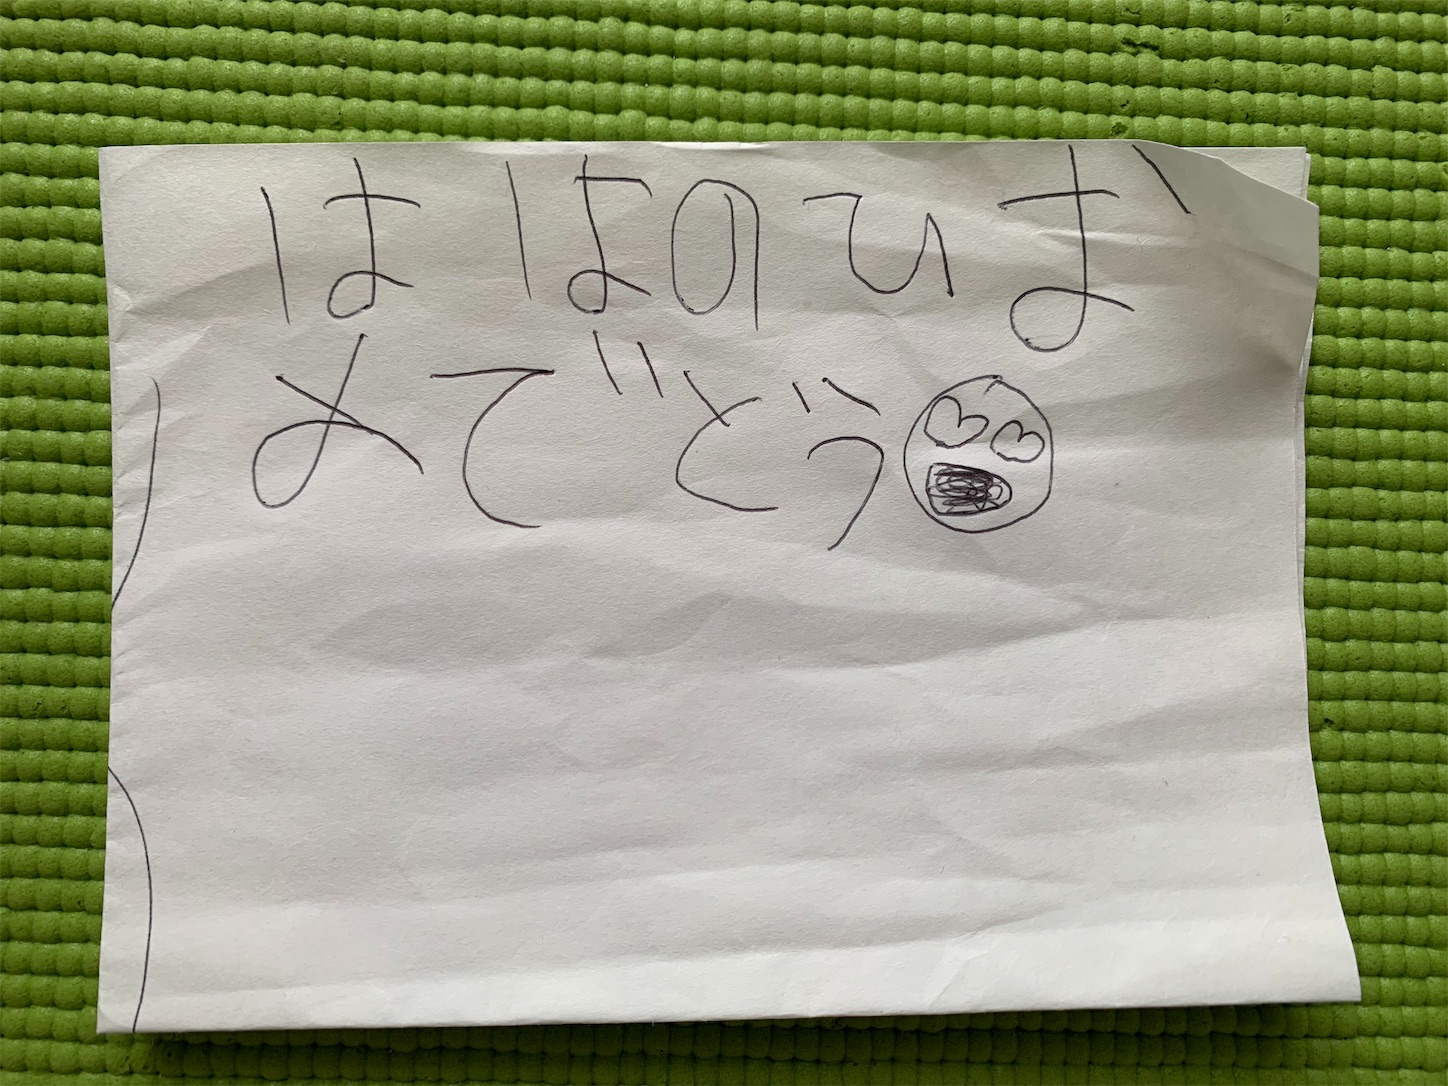 ははのひお
めでどう